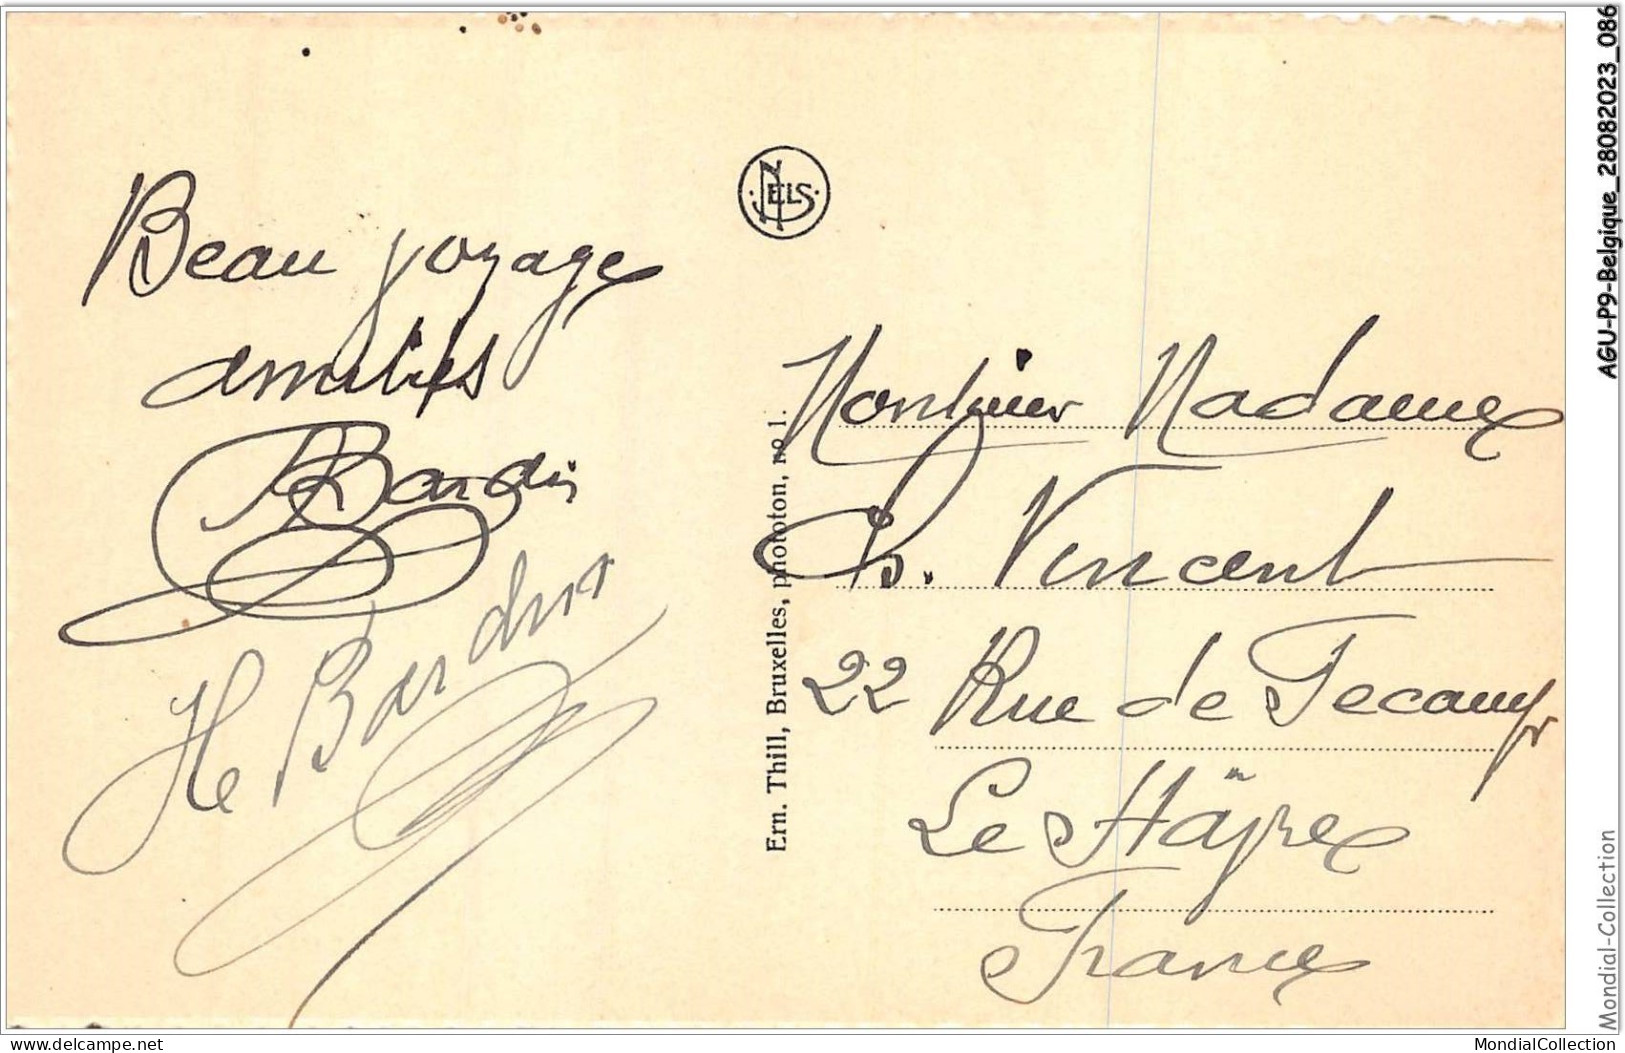 Beau voyage
amitiés
Bardin
H Bardin
NELS
Ern. Thill, Bruxelles, phototon, no 1.
Monsieur Madame
Ch. Vincent
22 Rue de Fecamp
Le Hâvre
France
AGU-P9-Belgique_28082023_086
Mondial-Collection
delcampe.net
MondialCollection